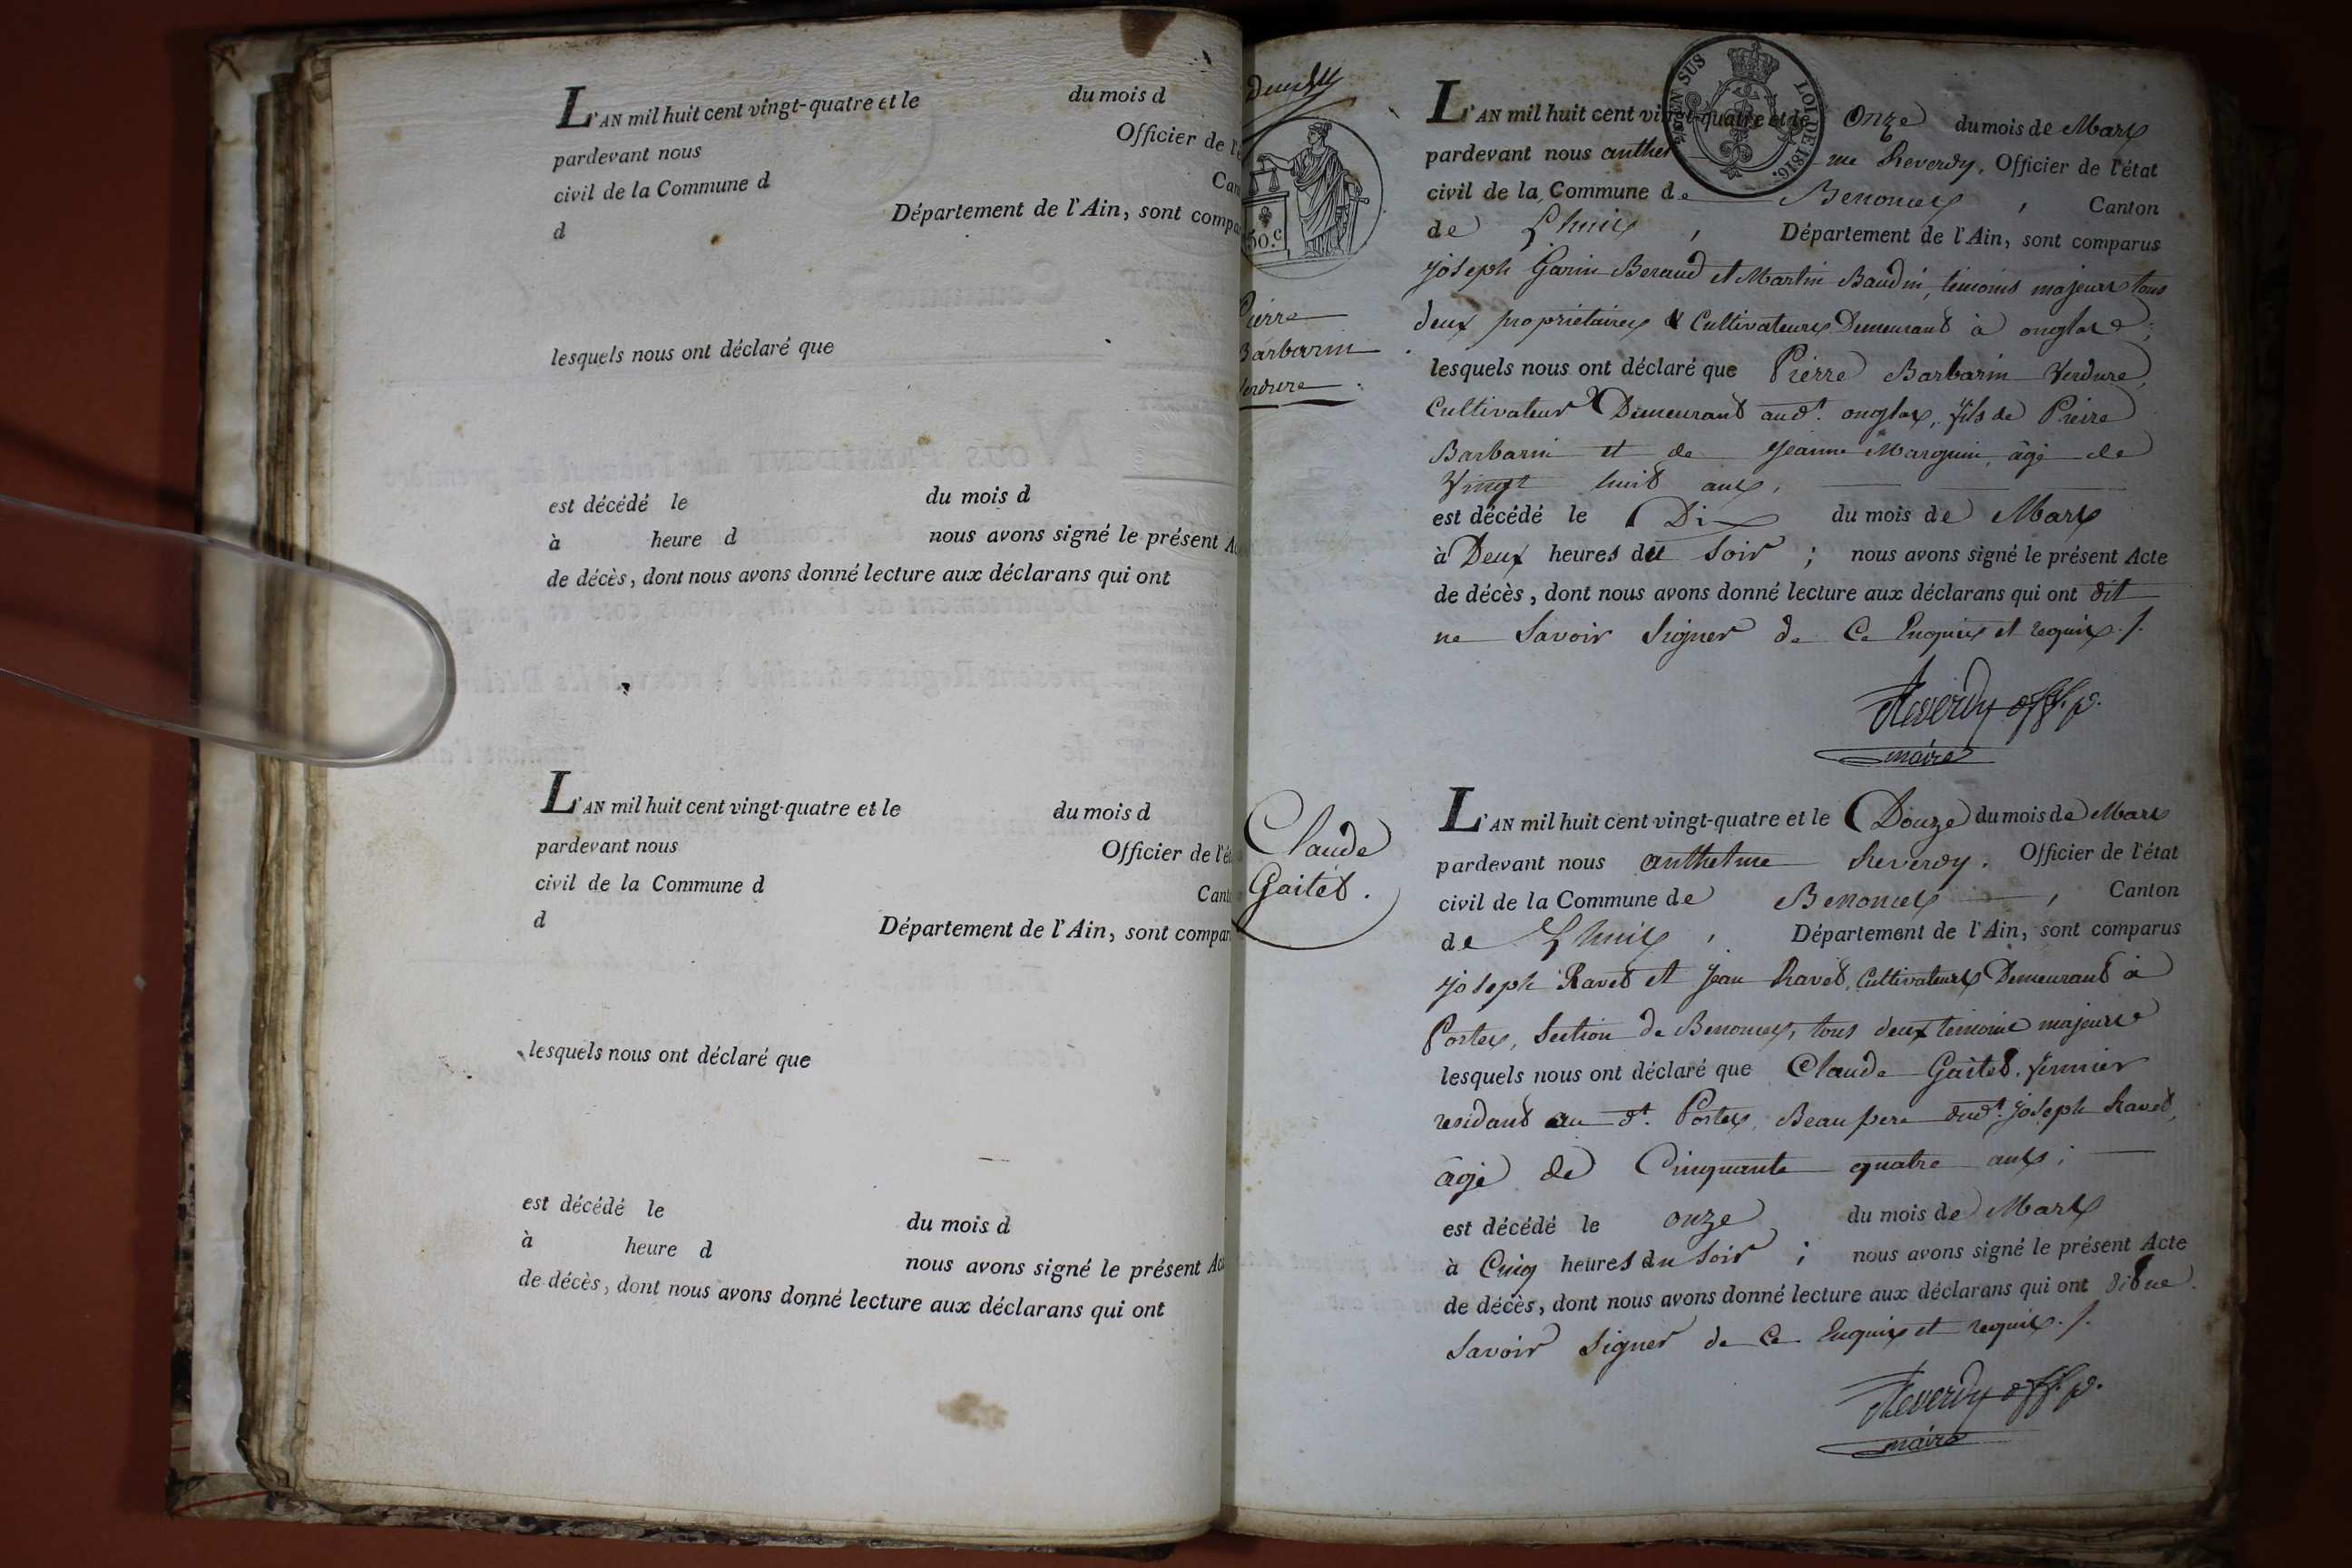 L'AN mil huit cent vingt-quatre et le du mois d
pardevant nous Officier de l'é
civil de la Commune d Can
d Département de l'Ain, sont compa
lesquels nous ont déclaré que
est décédé le du mois d
à heure d nous avons signé le présent A
de décès, dont nous avons donné lecture aux déclarans qui ont
L'AN mil huit cent vingt-quatre et le du mois d
pardevant nous Officier de l'ét
civil de la Commune d Cant
d Département de l'Ain, sont compar
lesquels nous ont déclaré que
est décédé le du mois d
à heure d nous avons signé le présent Ac
de décès, dont nous avons donné lecture aux déclarans qui ont
50.c
EN SUS
LOI DE 1816.
Pierre
Barbarin
Verdure
L'AN mil huit cent vingt-quatre et le Onze du mois de Mars
pardevant nous anthelme Reverdy, Officier de l'état
civil de la Commune de Benonces, Canton
de Lhuis, Département de l'Ain, sont comparus
joseph Garin Beraud et Martin Baudin, temoins majeurs tous
deux propriétaires & Cultivateurs Demeurant à onglas;
lesquels nous ont déclaré que Pierre Barbarin Verdure,
Cultivateur Demeurant aud.t onglas, fils de Pierre
Barbarin et de Jeanne Marguin, âgé de
Vingt huit ans,
est décédé le Dix du mois de Mars
à Deux heures du Soir; nous avons signé le présent Acte
de décès, dont nous avons donné lecture aux déclarans qui ont dit
ne Savoir Signer de Ce Enquis et requis./.
Reverdy off. p.
maire
Claude
Gaitet.
L'AN mil huit cent vingt-quatre et le Douze du mois de Mars
pardevant nous anthelme Reverdy, Officier de l'état
civil de la Commune de Benonces, Canton
de Lhuis, Département de l'Ain, sont comparus
joseph Ravet et Jean Ravet, Cultivateurs Demeurant à
Portes, Section de Benonces, tous deux temoins majeurs
lesquels nous ont déclaré que Claude Gaitet, fermier
residant au d.t Portes, Beau pere dud.t joseph Ravet,
âgé de Cinquante quatre ans;
est décédé le onze du mois de Mars
à Cinq heures du Soir; nous avons signé le présent Acte
de décès, dont nous avons donné lecture aux déclarans qui ont dit ne
Savoir Signer de Ce Enquis et requis./.
Reverdy off. p.
maire